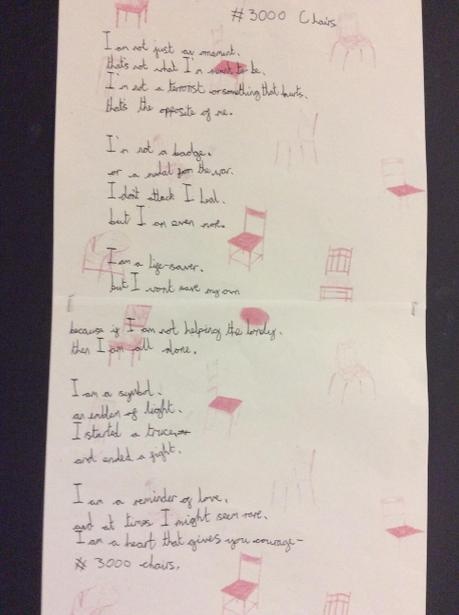 # 3000 Chairs
I am not just an moment.
that's not what I'm meant to be.
I'm not a terrorist or something that hurts.
that's the opposite of me.
I'm not a badge.
or a medal from the war.
I don't attack I heal.
but I am even more.
I am a life-saver.
but I wont save my own
because if I am not helping the lonely.
then I am all alone.
I am a symbol.
an emblem of light.
I started a truce,
and ended a fight.
I am a reminder of love.
and at times I might seem rare.
I am a heart that gives you courage-
# 3000 chairs.